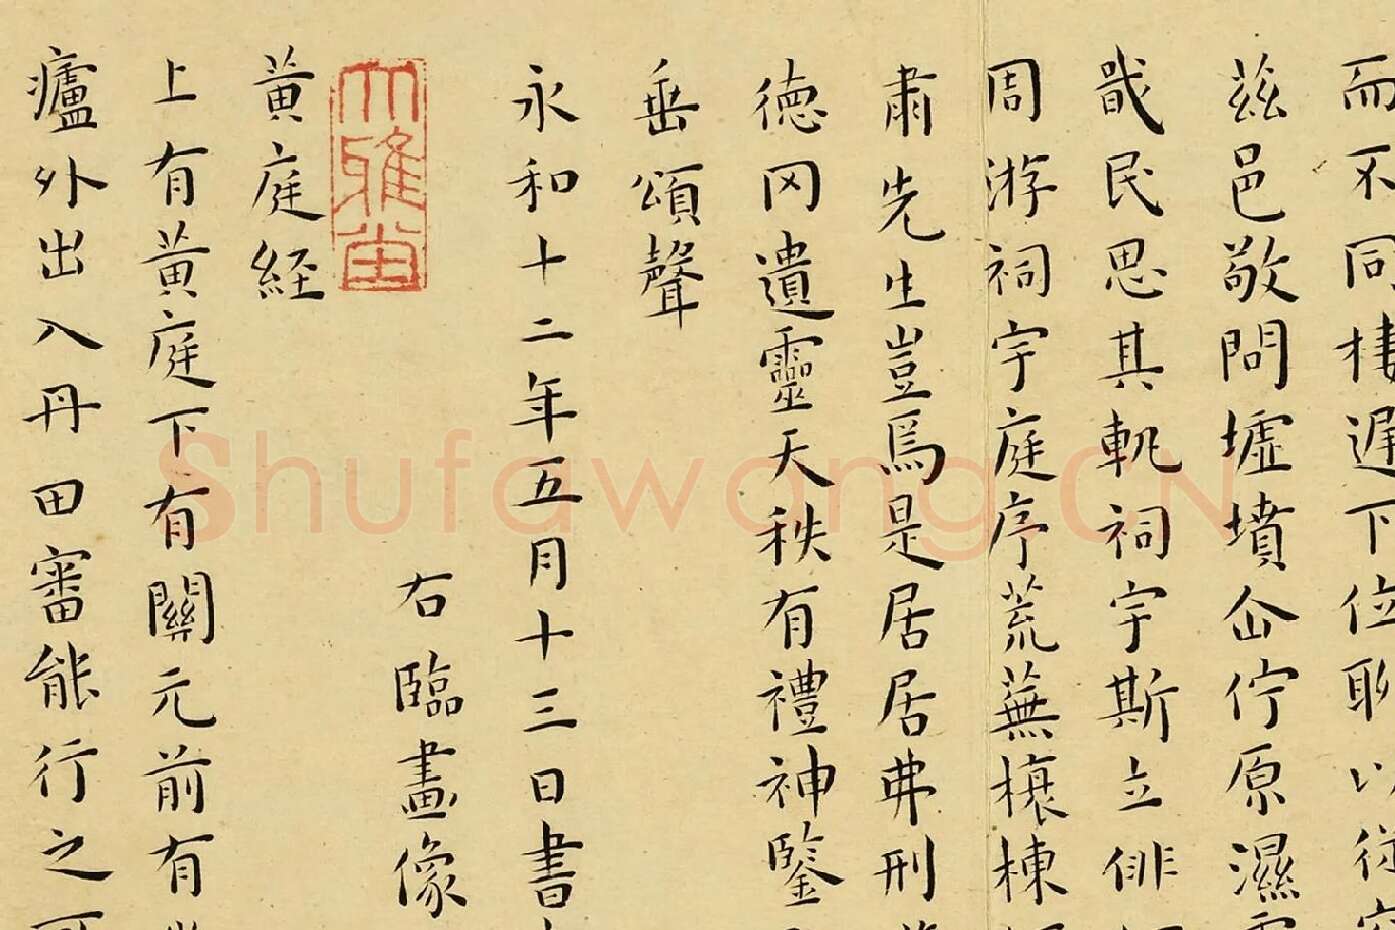 而不同棲遲下位聊以從容
茲邑敬問墟墳企佇原濕
戢民思其軌祠宇斯立俳
周游祠宇庭序荒蕪榱棟
肅先生豈焉是居居弗刑
德冈遺靈天秩有禮神鑒
垂頌聲
永和十二年五月十三日書
右臨畫像
大雅堂
黃庭経
上有黃庭下有關元前有
廬外出入丹田審能行之可
Shufawang.CN